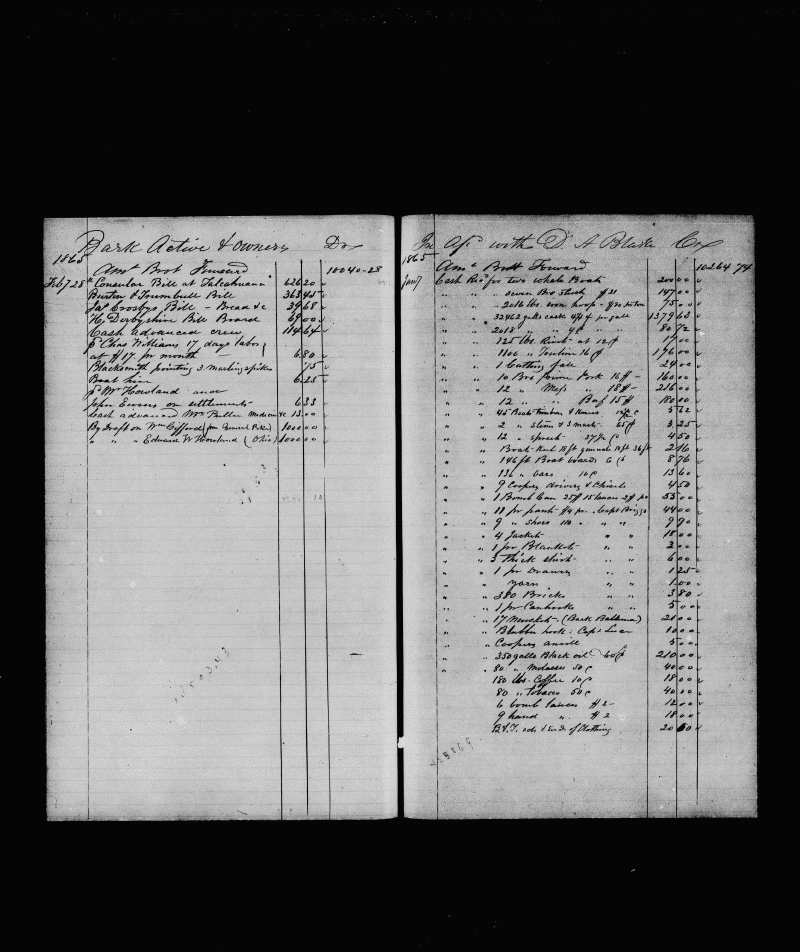 Bark Active & Owners Dr
1865
Amt Brot Forward 10040-28
Feby 28th Consular Bill at Talcahuano 626 20
Burton & Trumbull Bill 363 45
Jas Crosbys Bill - Bread &c 39 68
H. Derbyshire Bill Board 69 00
Cash advanced crew 1164 64
pd Chas Williams 17 days labor
at $17 pr month 6 80
Blacksmith pointing 3 marlingspikes 75
Boat hire 6 25
pd Wm Howland and
John Owens on settlements 6 33
Cash advanced Wm Fuller Medicine &c 13 00
By Draft on Wm Gifford (for Genl Pike) 1000 00
" " " Edward W Howland (Ohio) 1000 00
In a/c with D. A Blake Cr
1865
Amt Brott Forward 10264 74
Jany Cash Recd for two whale Boats 200 00
" " " seven Bro stock $21 147 00
" " " 2016 lbs. iron hoop 75 00
" " 32463 galls casks pr galls 1379 63
" " 2018 " " 4¢ " " 80 72
" " 125 lbs at 12¢ 17 00
" " 1100 " Towline 16¢ 176 00
" " 1 Cutting fall 24 00
" " 10 Bro prime Pork 16$- 160 00
" " 12 " Mess " 18$- 216 00
" " 12 " Beef 15$ 180 00
" " 45 Boats timbers & knees 12½¢ 5 62
" " 2 " Stems 65¢ 3 25
" " 12 " 37½¢ 4 50
" " Boat keel 18ft 2 16
" " 146ft Boat boards 6¢ 8 76
" " 136 " oars 10¢ 13 60
" " 9 Coopers drivers & Chisels 4 50
" " 1 Bomb Gun 25$ 15 lances 2$ pr 55 00
" " 11 pr pants $4 pr. Capt Briggs 44 00
" " 9 " Shoes 110 " " " 9 90
" " 4 Jackets " " 18 00
" " 1 pr Blankets " " 2 00
" " 3 Thick shirts " " 6 00
" " 1 pr Drawers " " 1 25
" " Yarn " " 1.00
" " 380 Bricks " " 3 80
" " 1 pr Canhooks " " 5 00
" " 17 (Bark Baltic) 21 00
" " Blubber hook: Capt 10 00
" " Coopers anvill 5 00
" " 350 galls Black oil 60¢ 210 00
" " 80 " Molasses 50¢ 40 00
180 lbs. Coffee 10¢ 18 00
80 " tobacco 50¢ 40 00
6 bomb lances $2- 12 00
9 hand " $2 18 00
odds & ends of Clothing 20 60